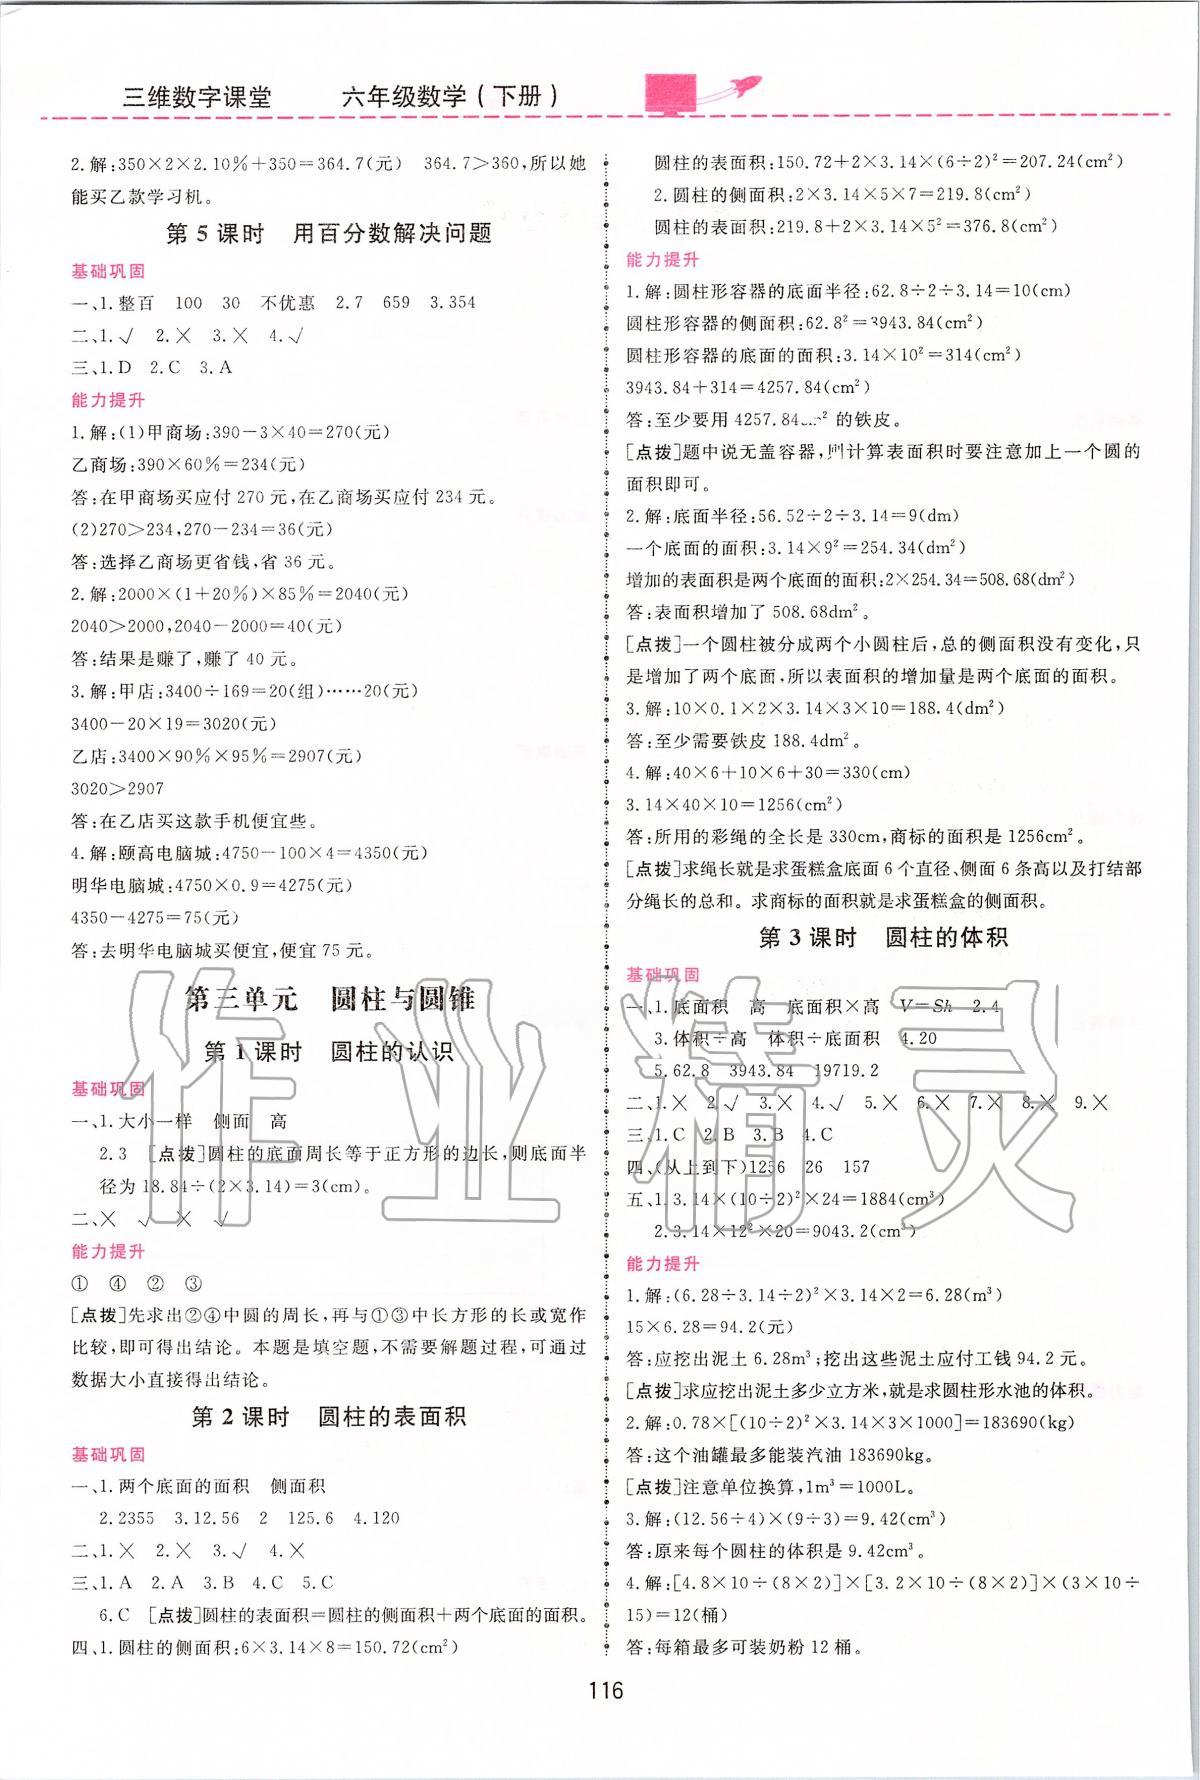 三维数字课堂 六年级数学(下册)
2.解:350×2×2.10%+350=364.7(元) 364.7>360,所以她
能买乙款学习机。
第5课时 用百分数解决问题
基础巩固
一、1.整百 100 30 不优惠 2.7 659 3.354
二、1.√ 2.× 3.× 4.√
三、1.D 2.C 3.A
能力提升
1.解:(1)甲商场:390-3×40=270(元)
乙商场:390×60%=234(元)
答:在甲商场买应付270元,在乙商场买应付234元。
(2)270>234,270-234=36(元)
答:选择乙商场更省钱,省36元。
2.解:2000×(1+20%)×85%=2040(元)
2040>2000,2040-2000=40(元)
答:结果是赚了,赚了40元。
3.解:甲店:3400÷169=20(组)……20(元)
3400-20×19=3020(元)
乙店:3400×90%×95%=2907(元)
3020>2907
答:在乙店买这款手机便宜些。
4.解:颐高电脑城:4750-100×4=4350(元)
明华电脑城:4750×0.9=4275(元)
4350-4275=75(元)
答:去明华电脑城买便宜,便宜75元。
第三单元 圆柱与圆锥
第1课时 圆柱的认识
基础巩固
一、1.大小一样 侧面 高
2.3 [点拨]圆柱的底面周长等于正方形的边长,则底面半
径为18.84÷(2×3.14)=3(cm)。
二、× √ × √
能力提升
① ④ ② ③
[点拨]先求出②④中圆的周长,再与①③中长方形的长或宽作
比较,即可得出结论。本题是填空题,不需要解题过程,可通过
数据大小直接得出结论。
第2课时 圆柱的表面积
基础巩固
一、1.两个底面的面积 侧面积
2.2355 3.12.56 2 125.6 4.120
二、1.× 2.× 3.√ 4.×
三、1.A 2.A 3.B 4.C 5.C
6.C [点拨]圆柱的表面积=圆柱的侧面积+两个底面的面积。
四、1.圆柱的侧面积:6×3.14×8=150.72(cm²)
圆柱的表面积:150.72+2×3.14×(6÷2)²=207.24(cm²)
2.圆柱的侧面积:2×3.14×5×7=219.8(cm²)
圆柱的表面积:219.8+2×3.14×5²=376.8(cm²)
能力提升
1.解:圆柱形容器的底面半径:62.8÷2÷3.14=10(cm)
圆柱形容器的侧面积:62.8²=3943.84(cm²)
圆柱形容器的底面的面积:3.14×10²=314(cm²)
3943.84+314=4257.84(cm²)
答:至少要用4257.84 ² 的铁皮。
[点拨]题中说无盖容器, 计算表面积时要注意加上一个圆的
面积即可。
2.解:底面半径:56.52÷2÷3.14=9(dm)
一个底面的面积:3.14×9²=254.34(dm²)
增加的表面积是两个底面的面积:2×254.34=508.68(dm²)
答:表面积增加了508.68dm²。
[点拨]一个圆柱被分成两个小圆柱后,总的侧面积没有变化,只
是增加了两个底面,所以表面积的增加量是两个底面的面积。
3.解:10×0.1×2×3.14×3×10=188.4(dm²)
答:至少需要铁皮188.4dm²。
4.解:40×6+10×6+30=330(cm)
3.14×40×10=1256(cm²)
答:所用的彩绳的全长是330cm,商标的面积是1256cm²。
[点拨]求绳长就是求蛋糕盒底面6个直径、侧面6条高以及打结部
分绳长的总和。求商标的面积就是求蛋糕盒的侧面积。
第3课时 圆柱的体积
基础巩固
一、1.底面积 高 底面积×高 V=Sh 2.4
3.体积÷高 体积÷底面积 4.20
5.62.8 3943.84 19719.2
二、1.× 2.√ 3.× 4.√ 5.× 6.× 7.× 8.× 9.×
三、1.C 2.B 3.B 4.C
四、(从上到下)1256 26 157
五、1.3.14×(10÷2)²×24=1884(cm³)
2.3.14×12²×20=9043.2(cm³)
能力提升
1.解:(6.28÷3.14÷2)²×3.14×2=6.28(m³)
15×6.28=94.2(元)
答:应挖出泥土6.28m³;挖出这些泥土应付工钱94.2元。
[点拨]求应挖出泥土多少立方米,就是求圆柱形水池的体积。
2.解:0.78×[(10÷2)²×3.14×3×1000]=183690(kg)
答:这个油罐最多能装汽油183690kg。
[点拨]注意单位换算,1m³=1000L。
3.解:(12.56÷4)×(9÷3)=9.42(cm³)
答:原来每个圆柱的体积是9.42cm³。
4.解:[4.8×10÷(8×2)]×[3.2×10÷(8×2)]×(3×10÷
15)=12(桶)
答:每箱最多可装奶粉12桶。
116
作业精灵